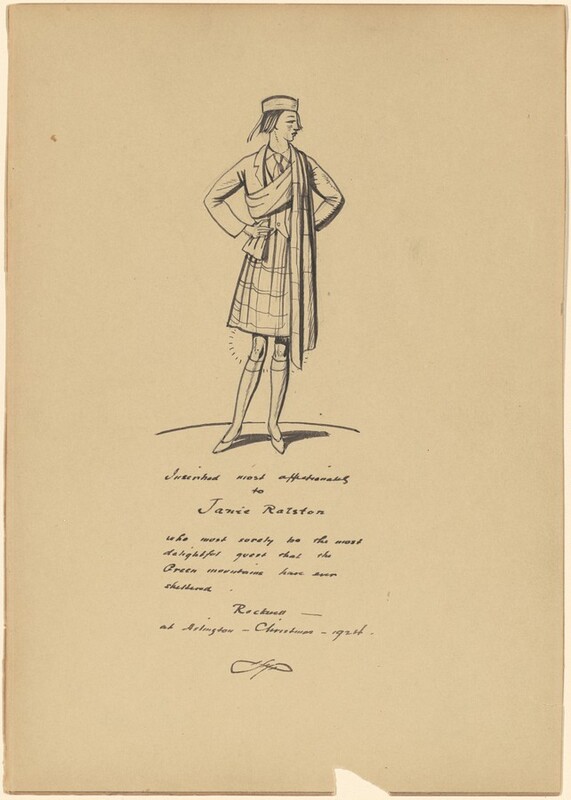 Inscribed most affectionately
to
Janie Ralston
who must surely be the most
delightful guest that the
Green mountains have ever
sheltered.
Rockwell —
at Arlington — Christmas — 1924.